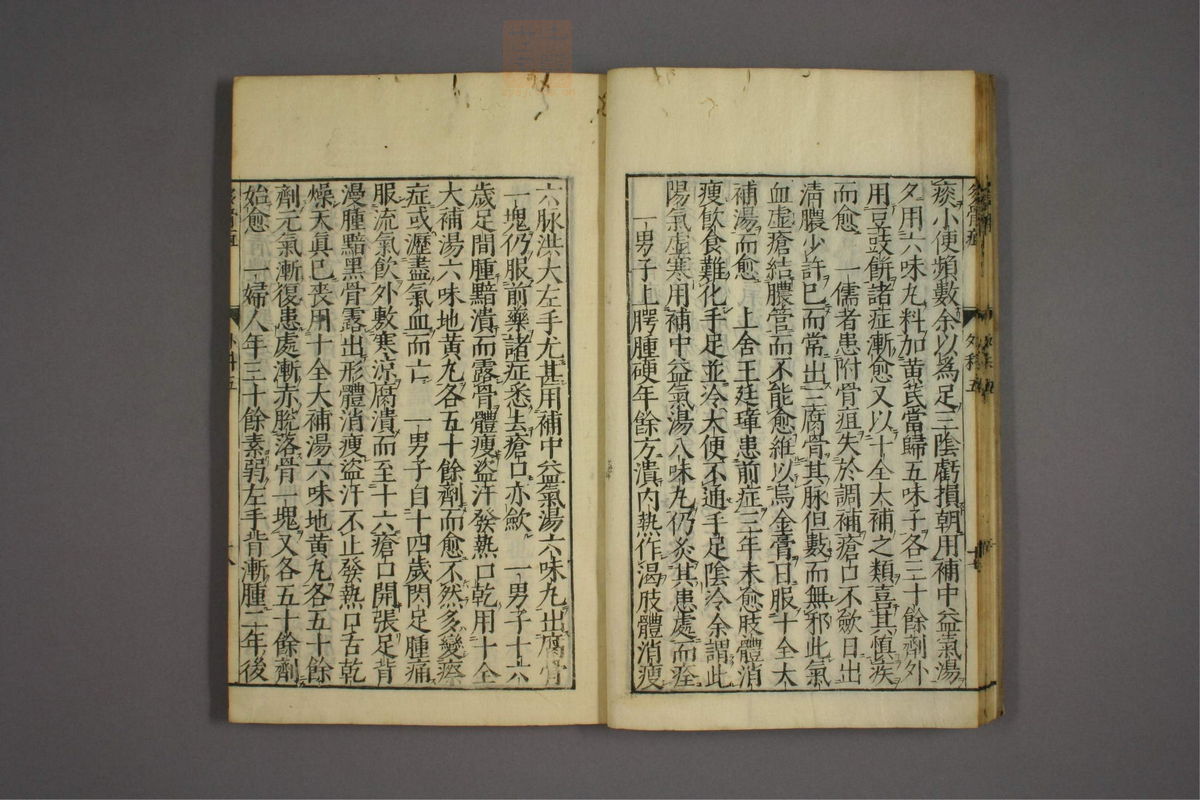 痰小便頻數余以爲足三陰虧損朝用補中益氣湯
夕用六味丸料加黄茋當歸五味子各三十餘劑外
用豆豉餅諸症漸愈又以十全大補之類喜其慎疾
而愈　一儒者患附骨疽失於調補瘡口不歛日出
清膿少許已而常出三腐骨其脉但數而無邪此氣
血虛瘡結膿管而不能愈維以烏金膏日服十全大
補湯而愈　上舍王廷璋患前症三年未愈肢體消
瘦飲食難化手足並冷大便不通手足陰冷余謂此
陽氣虛寒用補中益氣湯八味丸仍灸其患處而痊
一男子上腭腫硬年餘方潰内熱作渴肢體消瘦
六脉洪大左手尤甚用補中益氣湯六味丸出腐骨
一塊仍服前藥諸症悉去瘡口亦歛　一男子十六
歲足間腫黯潰而露骨體瘦盜汗發熱口乾用十全
大補湯六味地黄丸各五十餘劑而愈不然多變瘵
症或瀝盡氣血而亡　一男子自十四歲閃足腫痛
服流氣飲外敷寒凉腐潰而至十六瘡口開張足背
漫腫黯黑骨露出形體消瘦盜汗不止發熱口舌乾
燥天真已喪用十全大補湯六味地黄丸各五十餘
劑元氣漸復患處漸赤脫落骨一塊又各五十餘劑
始愈　一婦人年三十餘素弱左手背漸腫二年後
外科五